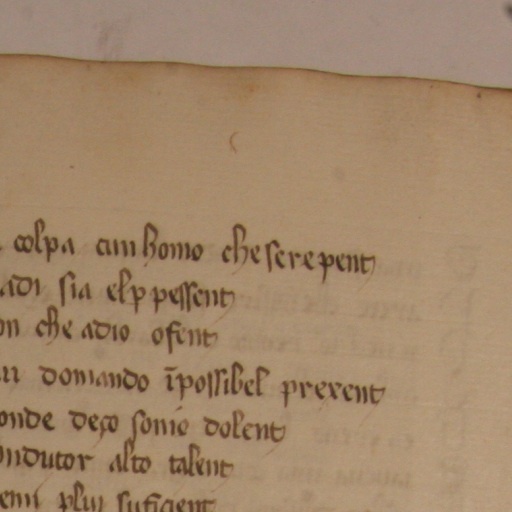 colpa cun homo che se repent
adi sia el ppessent
on che adio ofent
domando īpossibel prexent
onde deço sonio dolent
ondutor alto talent
emi plui suficient